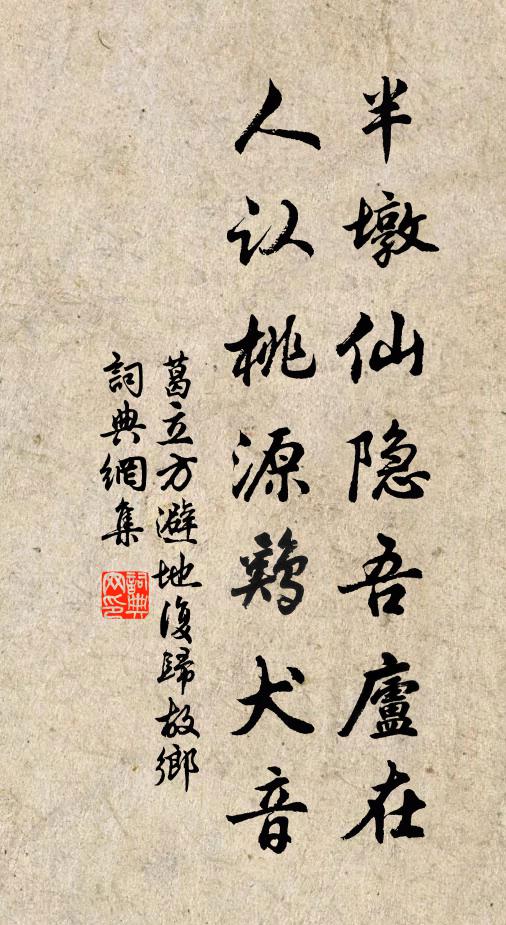 半墩仙隐吾廬在
人认桃源鷄犬音
葛立方避地復歸故鄉
詞典網集
詞典网印